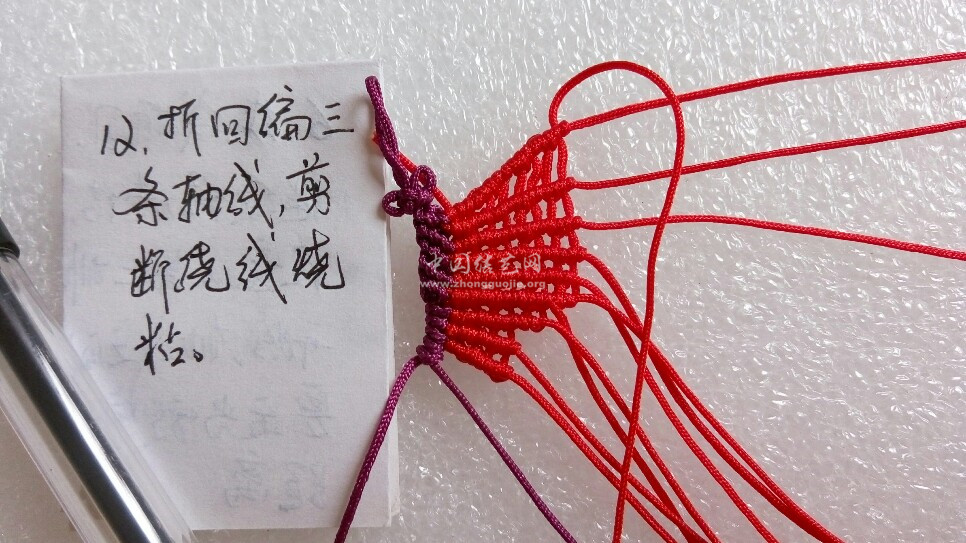 12，折回编三
条轴线，剪
断绕线烧
粘。
中国结艺网
www.zhongguojie.org